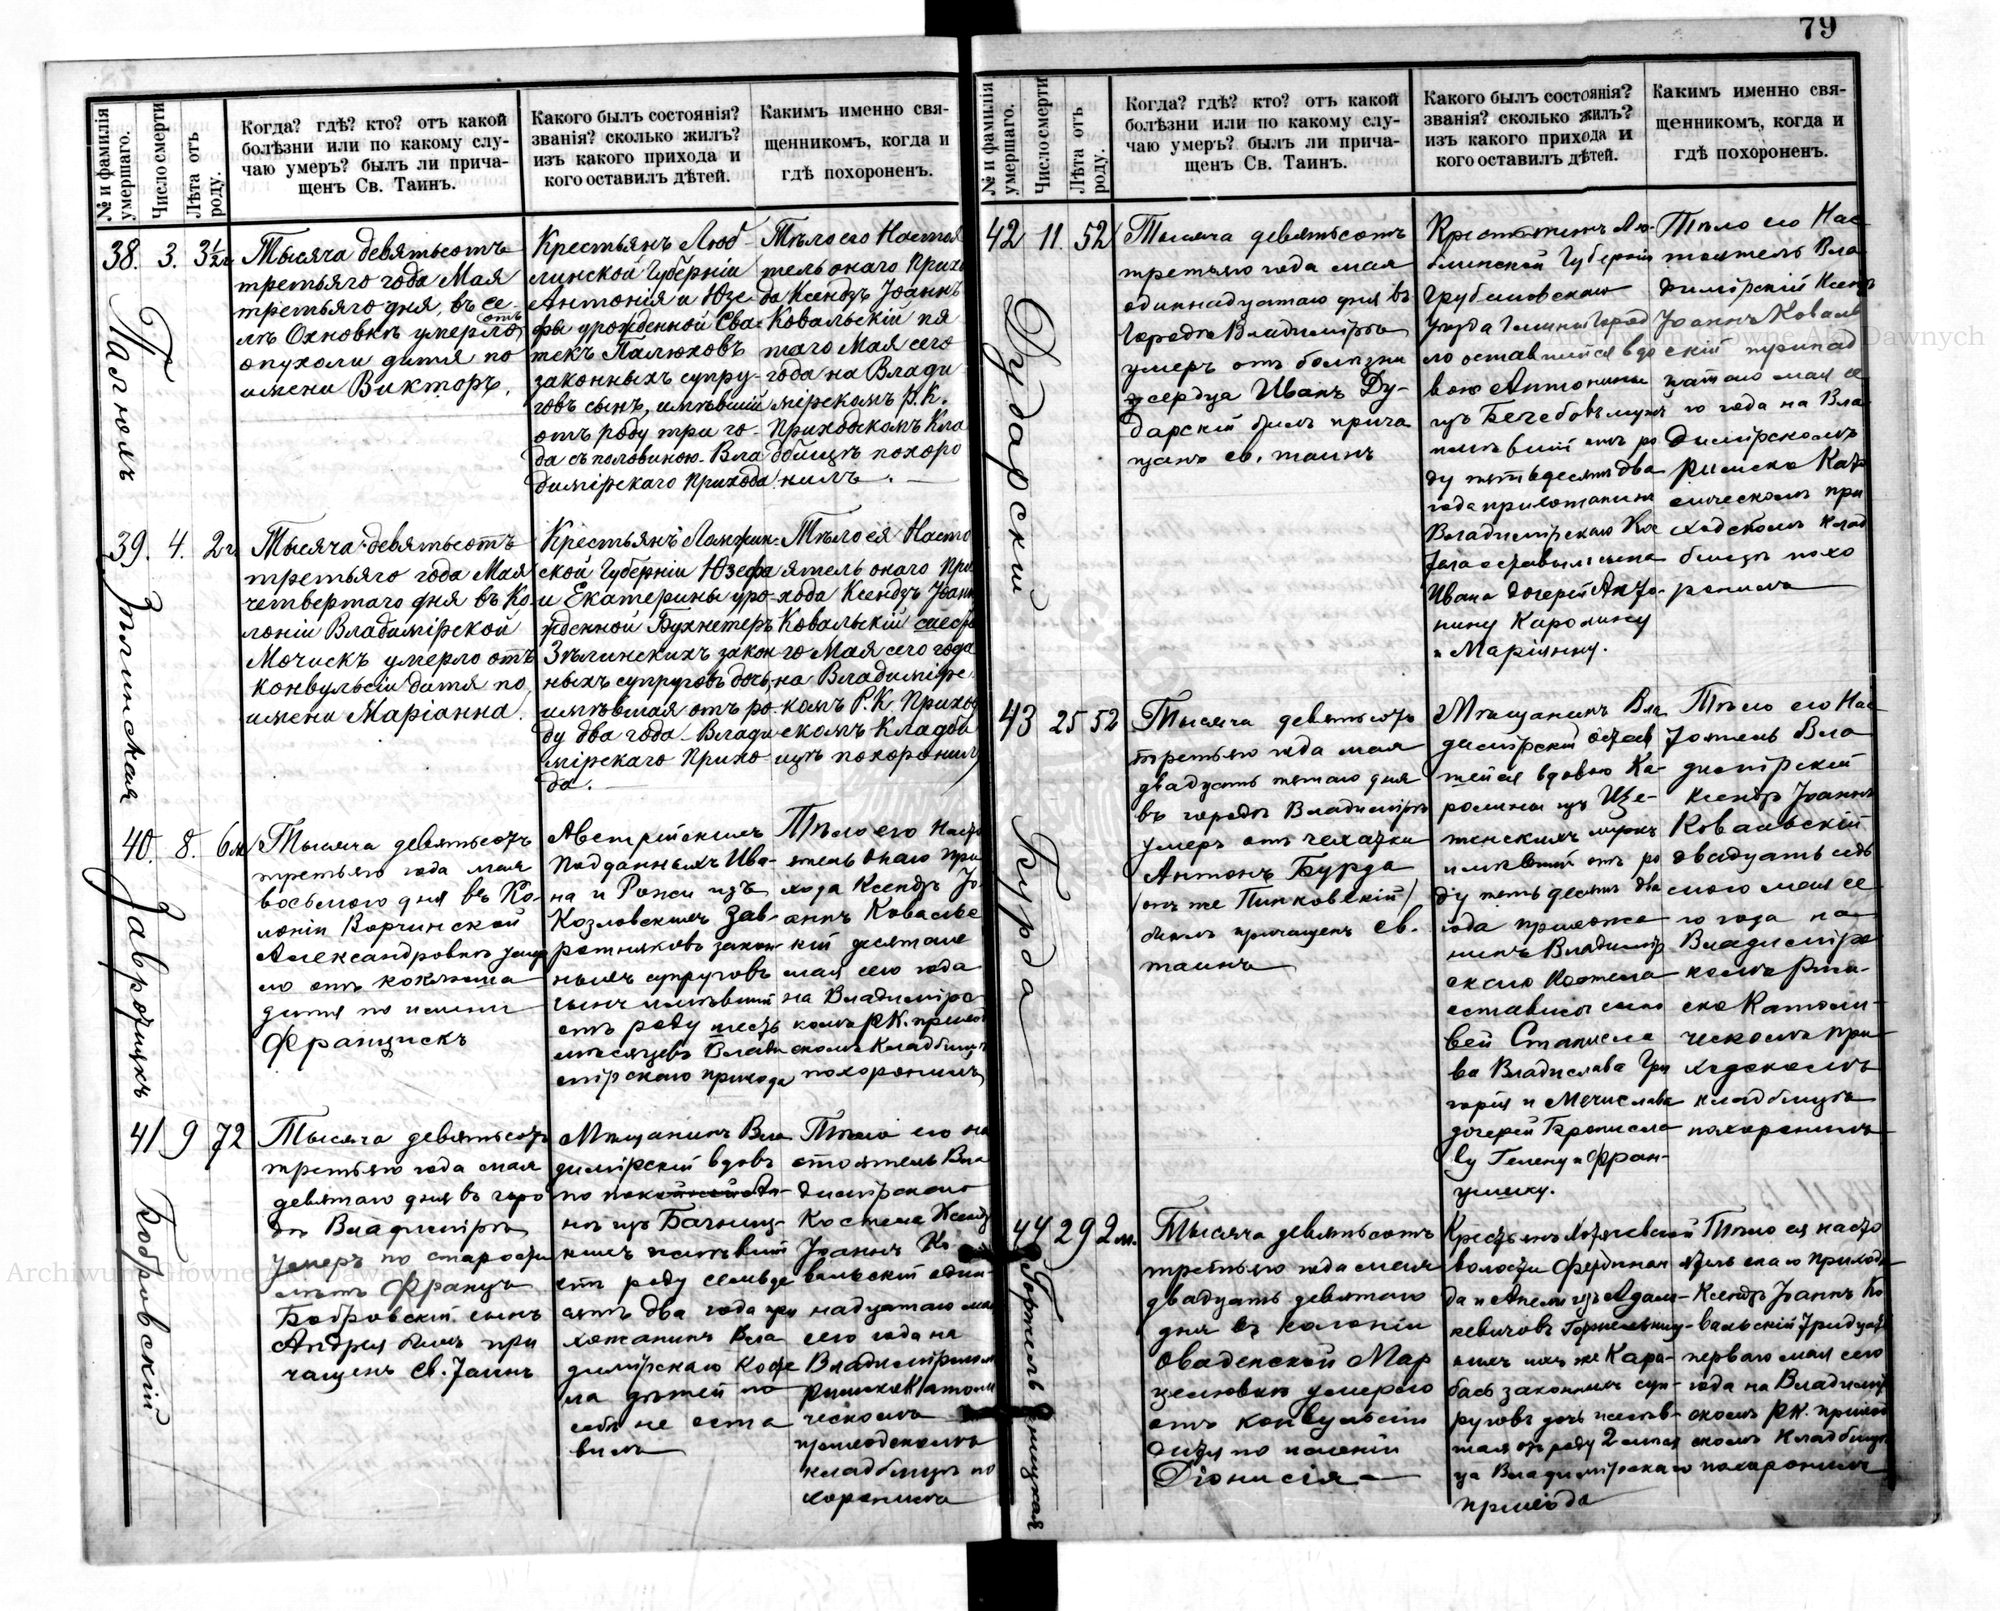 79
№ и фамилія умершаго.
Число смерти
Лѣта отъ роду.
Когда? гдѣ? кто? отъ какой
болѣзни или по какому слу-
чаю умеръ? былъ ли прича-
щенъ Св. Таинъ.
Какого былъ состоянія?
званія? сколько жилъ?
изъ какого прихода и
кого оставилъ дѣтей.
Какимъ именно свя-
щенникомъ, когда и
гдѣ похороненъ.
38. 3. 3½
Тысяча девятьсотъ
третьяго года Мая
третьяго дня, въ се-
лѣ Охновкѣ умерло
отъ
опухоли дитя по
имени Викторъ.
Крестьянъ Люб-
линской Губерніи
Антонія и Юзе-
фы урожденной Сва-
текъ Палюховъ
законныхъ супру-
говъ сынъ, имѣвшій
отъ роду три го-
да съ половиною. Вла
димірскаго Прихода
Тѣло его Настоя
тель онаго Прихо
да Ксендзъ Іоаннъ
Ковальскій пя
таго Мая сего
года на Влади
мірскомъ Р. К.
Приходскомъ Кла
дбищѣ похоро
нилъ.
39. 4. 2 г
Зѣлинская
Тысяча девятьсотъ
третьяго года Мая
четвертаго дня въ Ко-
лоніи Владимірской
Мочискъ умерло отъ
конвульсіи дитя по
имени Маріанна.
Крестьянъ Ломжин-
ской Губерніи Юзефа
и Екатерины уро-
жденной Бухнетеръ
Зѣлинскихъ закон-
ныхъ супруговъ дочь,
имѣвшая отъ ро-
ду два года Влади
мірскаго Прихо-
да.
Тѣло ея Насто
ятель онаго При
хода Ксендзъ Іоаннъ
Ковальскій шесто
го Мая сего года
на Владимірс
комъ Р. К. Приход
скомъ Кладби
щѣ похоронилъ
40. 8. 6 м
Заврот­някъ
Тысяча девятьсотъ
третьяго года мая
восьмого дня въ Ко-
лоніи Ворчинской
Александровкѣ умер
ло отъ коклюша
дитя по имени
Францискъ
Австрійскихъ
Подданныхъ Ива-
на и Рожи изъ
Козловскихъ Зав-
ротняковъ закон-
ныхъ супруговъ
сынъ имѣвшій
отъ роду шесть
мѣсяцевъ Влади
мірскаго прихода
Тѣло его Насто
ятель онаго При
хода Ксендзъ Іо
аннъ Ковальс
кій десятаго
мая сего года
на Владимірс
комъ Р.К. приход
скомъ Кладбищѣ
похоронилъ
41 9 72
Бобровскій
Тысяча девятьсотъ
третьяго года мая
девятаго дня въ горо
дѣ Владимірѣ
умеръ по старости
лѣтъ Францъ
Бобровскій сынъ
Андрея былъ при
чащенъ Св. Таинъ
Мѣщанинъ Вла
димірскій вдовъ
по покойной Ан-
нѣ изъ
имѣвшій
отъ роду семьде
сятъ два года при
хожанинъ Вла
димірскаго Косте
ла дѣтей по
себѣ не оста
вилъ
Тѣло его на
стоятель Вла
димірскаго
Костела Ксендзъ
Іоаннъ Ко-
вальскій один-
надцатаго мая
сего года на
Владимірскомъ
римско Католи
ческомъ
приходскомъ
кладбищѣ по
хоронилъ
№ и фамилія умершаго.
Число смерти
Лѣта отъ роду.
Когда? гдѣ? кто? отъ какой
болѣзни или по какому слу-
чаю умеръ? былъ ли прича-
щенъ Св. Таинъ.
Какого былъ состоянія?
званія? сколько жилъ?
изъ какого прихода и
кого оставилъ дѣтей.
Какимъ именно свя-
щенникомъ, когда и
гдѣ похороненъ.
42 11. 52
Дударскій
Тысяча девятьсотъ
третьяго года мая
одиннадцатаго дня въ
Городѣ Владимірѣ
умеръ отъ болѣзни
сердца Иванъ Ду-
дарскій былъ прича
щенъ св. таинъ
Крестьянинъ Лю-
блинской Губерніи
Грубешовскаго
Уѣзда Гмины Город
ло оставшійся вдо
вою Антонины
изъ
имѣвшій отъ ро
ду пятьдесятъ два
года прихожанинъ
Владимірскаго Кос
тела оставилъ сына
Ивана дочерей Анто-
нину Каролину
и Маріянну.
Тѣло его Нас
тоятель Вла
димірскій Ксендзъ
Іоаннъ Коваль
скій тринад
цатаго мая се
го года на Вла
димірскомъ
римско Като
лическомъ при
ходскомъ клад
бищѣ похо
ронилъ
43 25 52
Бурда
Тысяча девятьсотъ
третьяго года мая
двадцать пятаго дня
въ городѣ Владимірѣ
умеръ отъ чахотки
Антонъ Бурда
(онъ же Пинковскій)
былъ причащенъ св.
таинъ
Мѣщанинъ Вла
димірскій остав
шейся вдовою Ка-
ролины изъ
мужъ
имѣвшій отъ ро
ду пятьдесятъ два
года прихожа
нинъ Владимір
скаго Костела
оставилъ сыно
вей Станисла
ва Владислава Гри
горія и Мечислава
дочерей Брониcла
ву Гелену и Фран-
цишку.
Тѣло его Нас
тоятель Вла
димірскій
Ксендзъ Іоаннъ
Ковальскій
двадцать седь
мого мая се
го года на
Владимірс
комъ Рим-
ско Католи-
ческомъ при
ходскомъ
кладбищѣ
похоронилъ
44 29 2 м.
Тысяча девятьсотъ
третьяго года мая
двадцать девятаго
дня въ колоніи
Оваденской Мар
целювкѣ умерло
отъ конвульсіи
дитя по имени
Діонисія
Крестьянъ Хотячевской
волости Фердинан
да и Анели изъ Адам-
кевичовъ Гортельниц-
кихъ они же Кара-
бась законныхъ суп-
руговъ дочь имѣв-
шая отъ роду 2 мѣся
ца Владимірскаго
прихода
Тѣло ея насто
ятель онаго Прихода
Ксендзъ Іоаннъ Ко
вальскій тридцать
перваго мая сего
года на Владимір
скомъ Р.К. приход
скомъ Кладбищѣ
похоронилъ